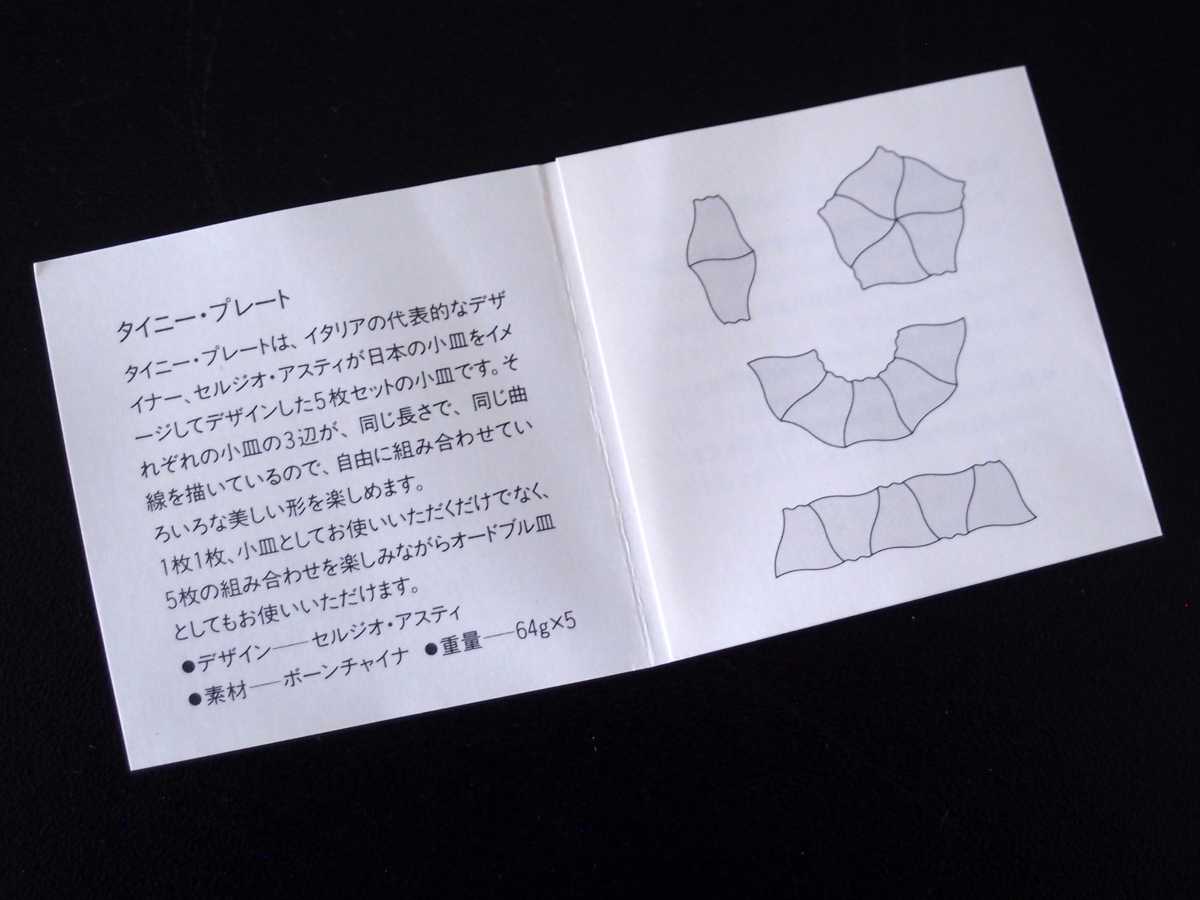 タイニー・プレート
タイニー・プレートは、イタリアの代表的なデザ
イナー、セルジオ・アスティが日本の小皿をイメ
ージしてデザインした5枚セットの小皿です。そ
れぞれの小皿の3辺が、同じ長さで、同じ曲
線を描いているので、自由に組み合わせてい
ろいろな美しい形を楽しめます。
1枚1枚、小皿としてお使いいただくだけでなく、
5枚の組み合わせを楽しみながらオードブル皿
としてもお使いいただけます。
●デザイン──セルジオ・アスティ
●素材──ボーンチャイナ ●重量──64g×5